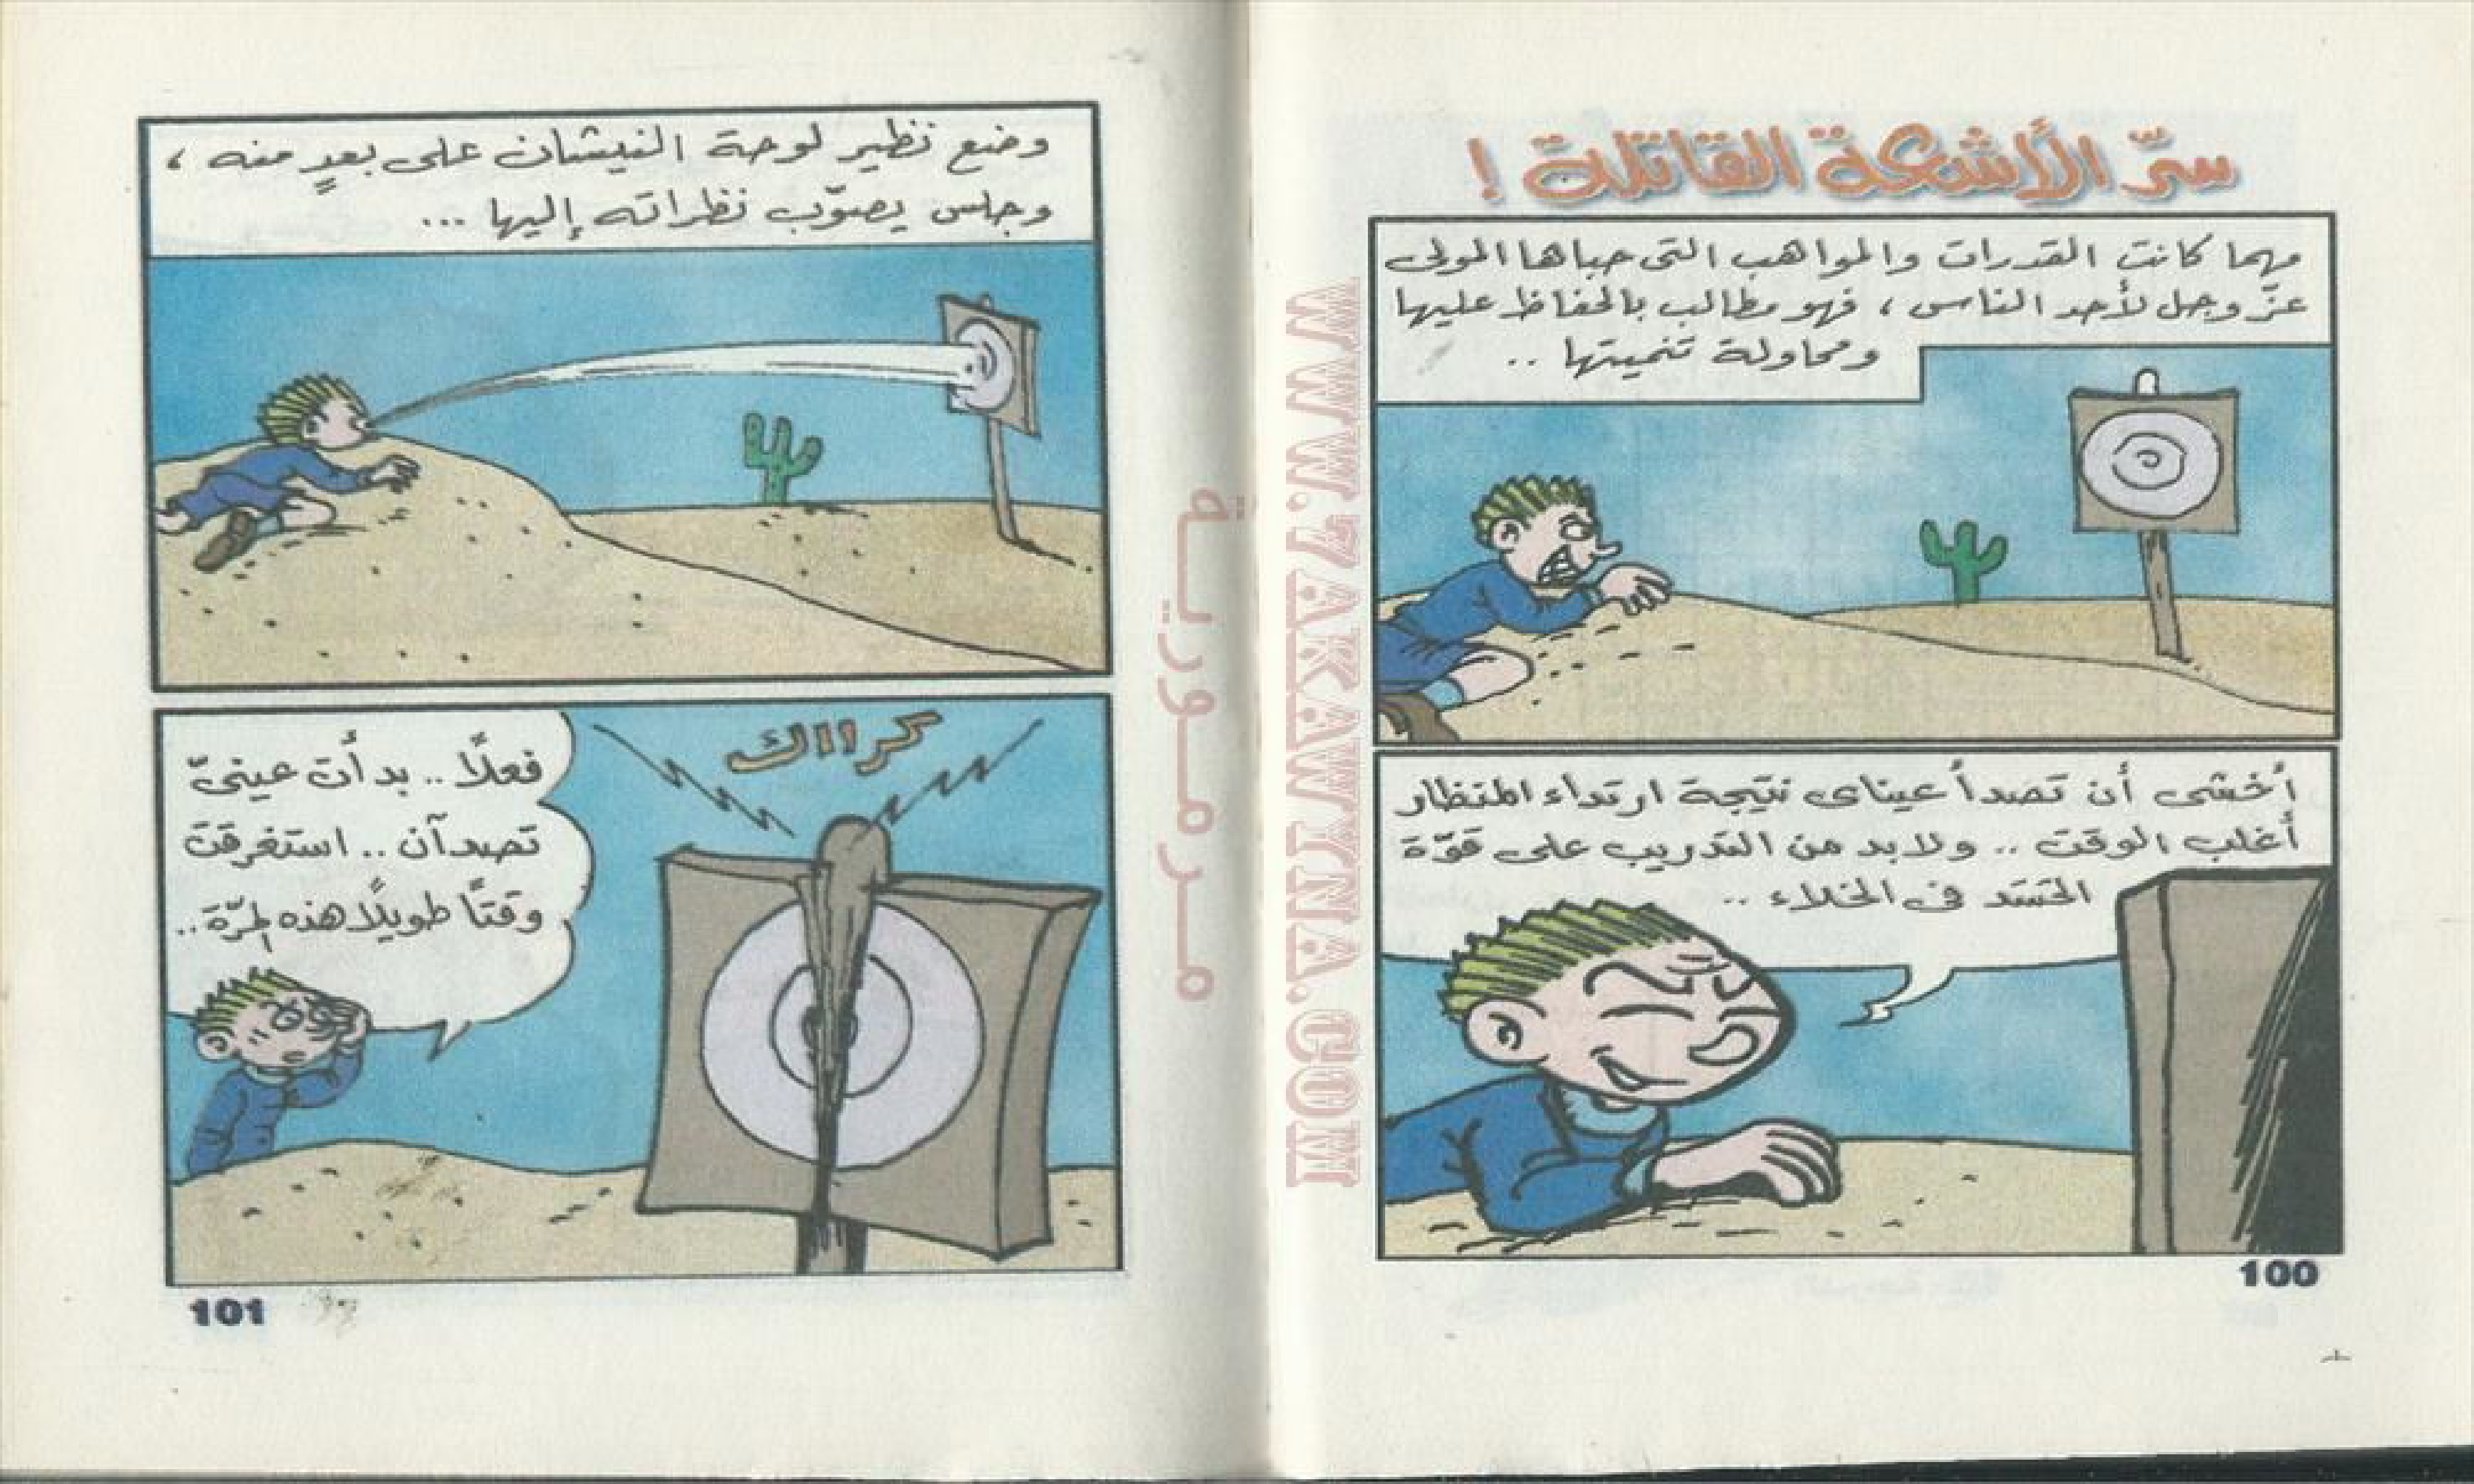 سرّ الأشكة القاتلة !
مهما كانت القدرات والمواهب التى حباها المولى
عزّ وجل لأحد الناس ، فهو مطالب بالحفاظ عليها
ومحاولة تنميتها ..
أخشى أن تصدأ عيناى نتيجة ارتداء المنظار
أغلب الوقت .. ولابد من التدريب على قوّة
الحَسَد فى الخلاء ..
100
وضع نظير لوحة النيشان على بعدٍ منه ،
وجلس يصوّب نظراته إليها ...
كراااك
فعلًا .. بدأت عينىّ
تصدآن .. استغرقت
وقتًا طويلًا هذه المرّة ..
101
مرمورية
WWW.7AKAWINA.COM